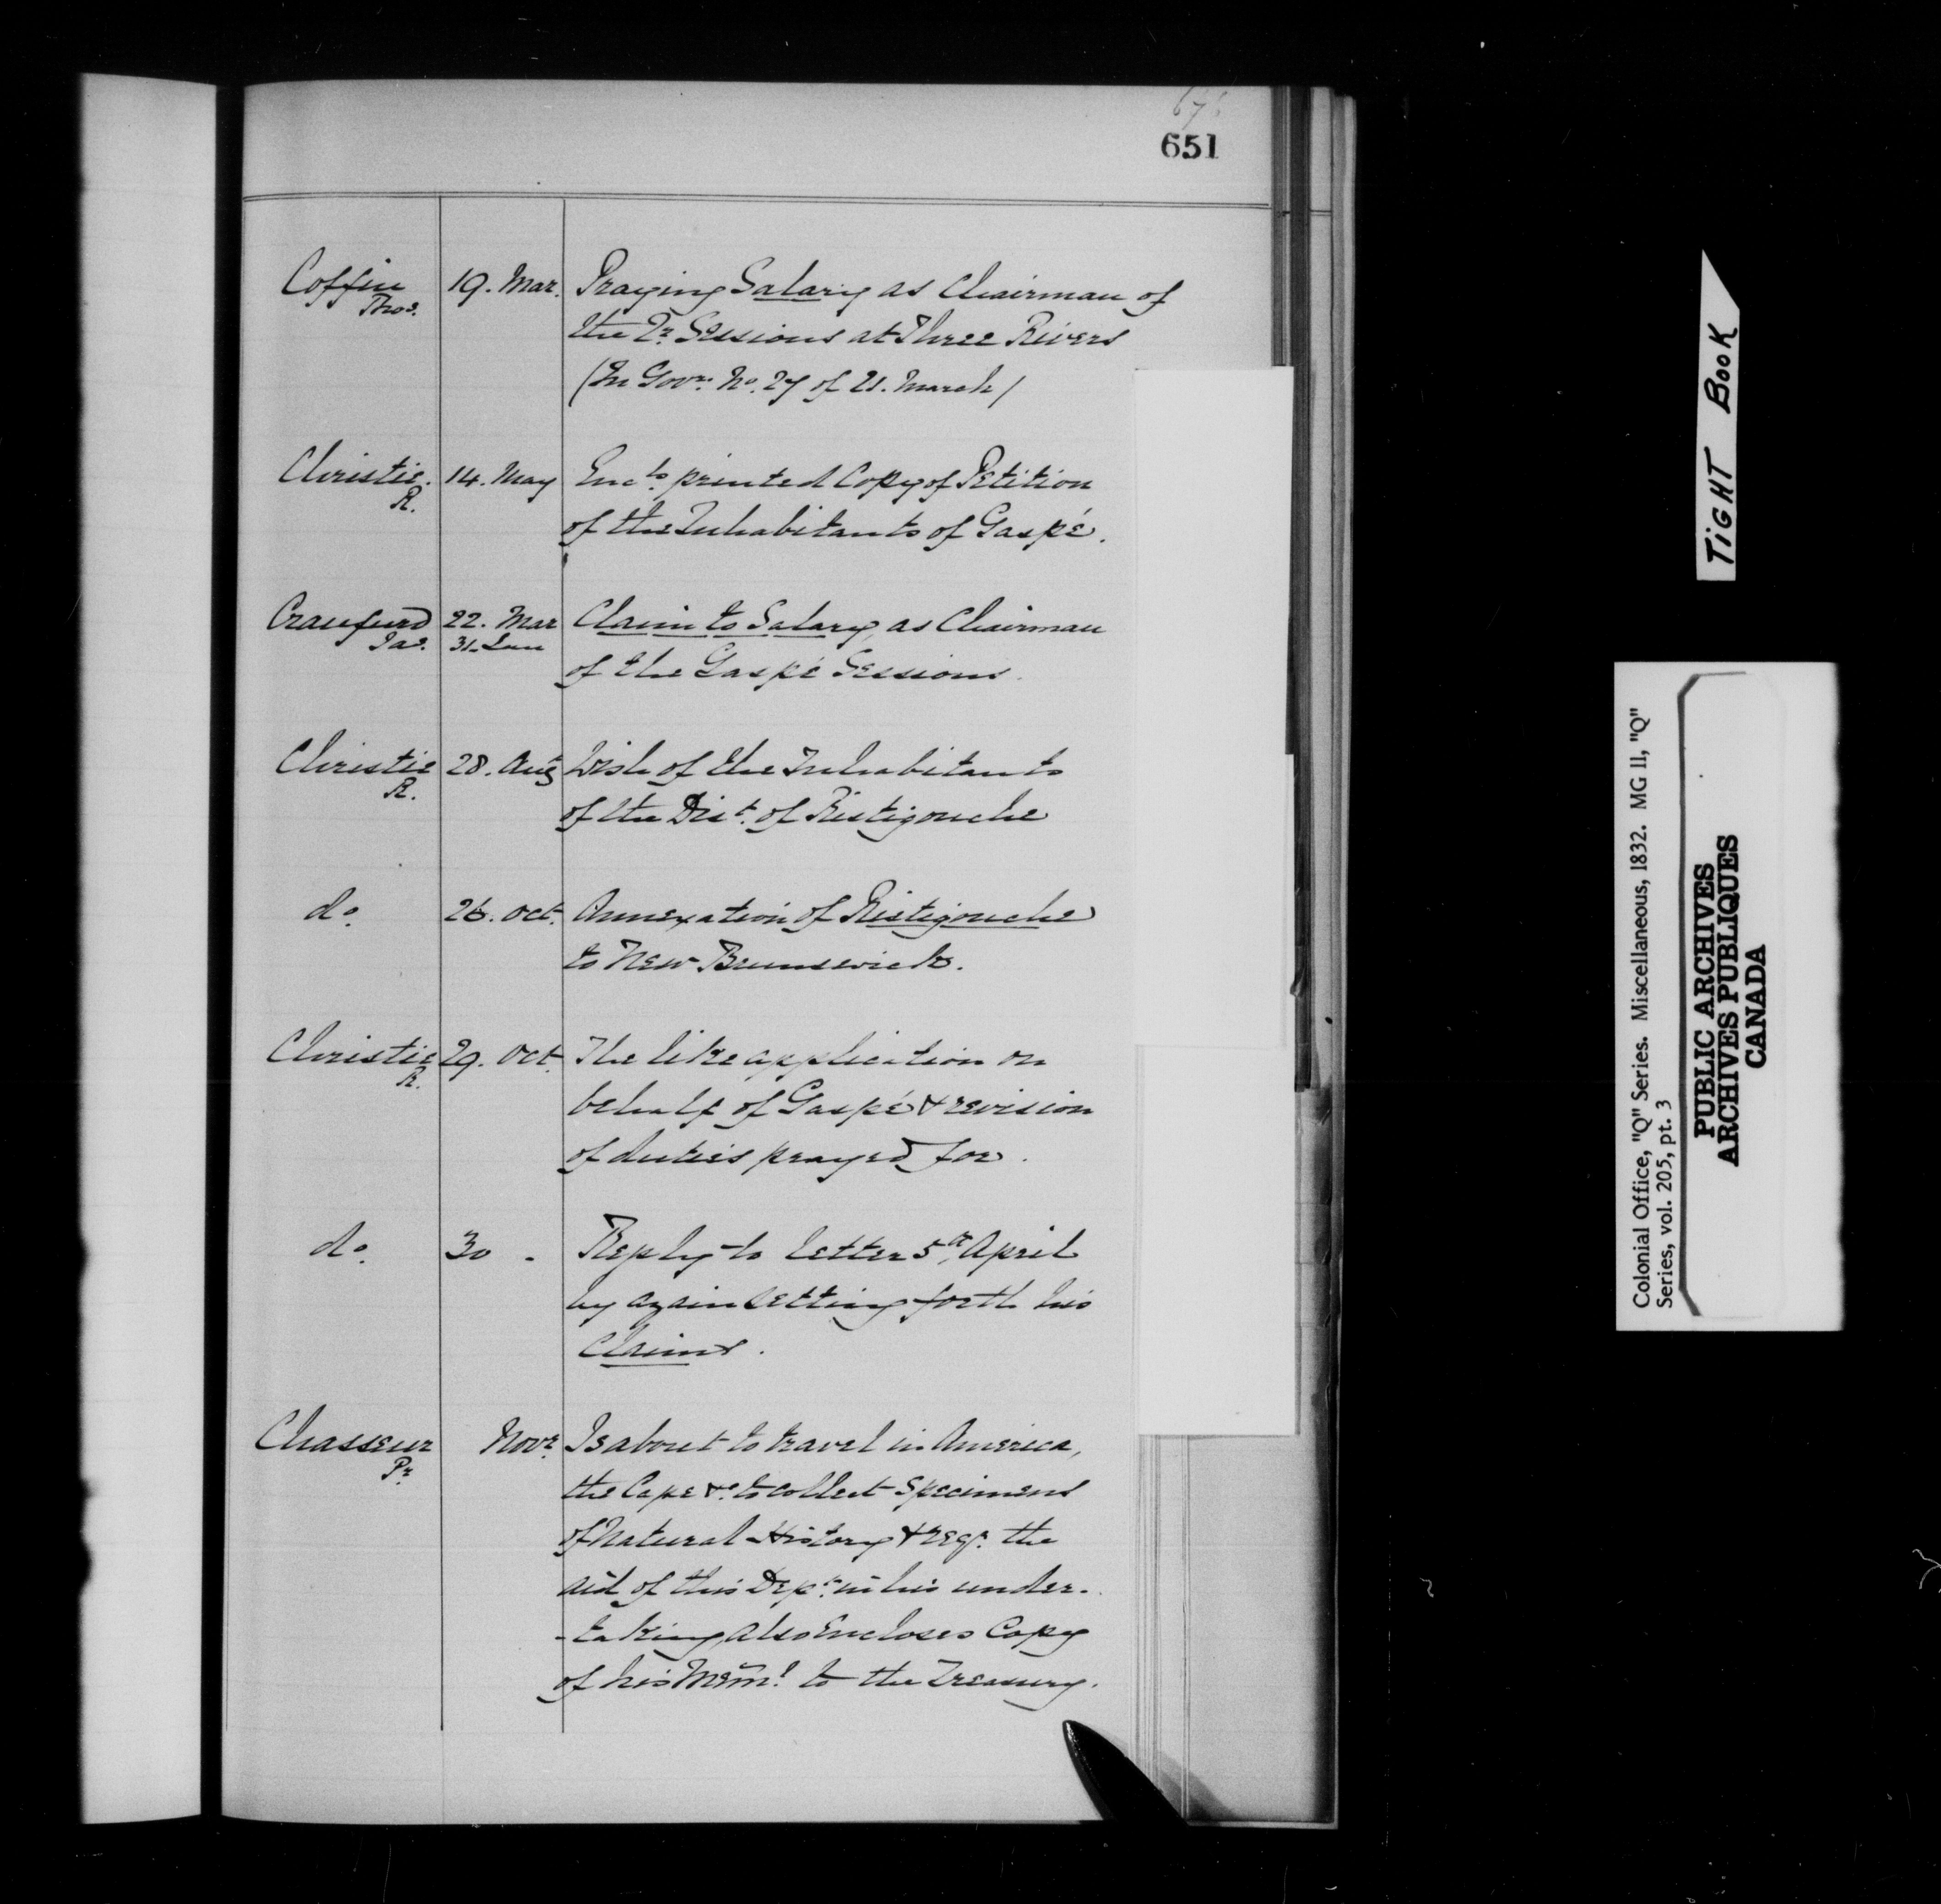 651
Coffin 19. Mar. Praying Salary as Chairman of
Thos. the Qr Sessions at Three Rivers
(In Govr. No. 27 of 21. March)
Christie. 14. May Encls. printed Copy of Petition
R. of the Inhabitants of Gaspé.
Craufurd 22. Mar Claim to Salary, as Chairman
Jas. 31. Jan of the Gaspé Sessions.
Christie 28. Aug Wish of the Inhabitants
R. of the Dist. of Ristigouche
do. 26. Oct. Annexation of Ristigouche
to New Brunswick.
Christie 29. Oct. The like application on
R. behalf of Gaspé & revision
of duties prayed for.
do. 30 - Reply to letter 5th April
by again setting forth his
Claims.
Chasseur Novr. Is about to travel in America,
Pr. the Cape &c. to collect Specimens
of Natural History & reqs. the
aid of this Dept. in his under-
-taking, also Encloses Copy
of his Meml. to the Treasury.
TIGHT BOOK
Colonial Office, "Q" Series. Miscellaneous, 1832. MG 11, "Q"
Series, vol. 205, pt. 3
PUBLIC ARCHIVES
ARCHIVES PUBLIQUES
CANADA